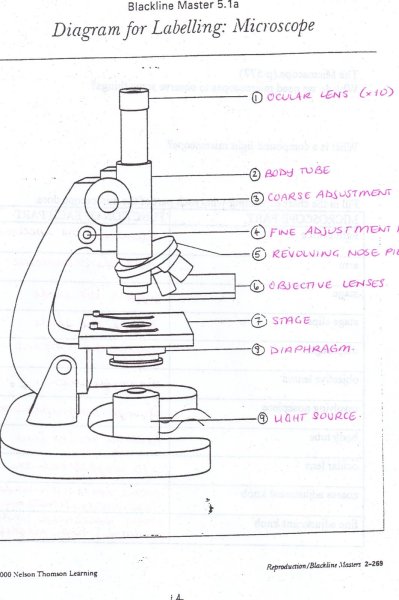 Blackline Master 5.1a
Diagram for Labelling: Microscope
① OCULAR LENS (×10)
② BODY TUBE
③ COARSE ADJUSTMENT
④ FINE ADJUSTMENT
⑤ REVOLVING NOSE
⑥ OBJECTIVE LENSES
⑦ STAGE
⑧ DIAPHRAGM.
⑨ LIGHT SOURCE.
Reproduction/Blackline Masters 2-269
000 Nelson Thomson Learning